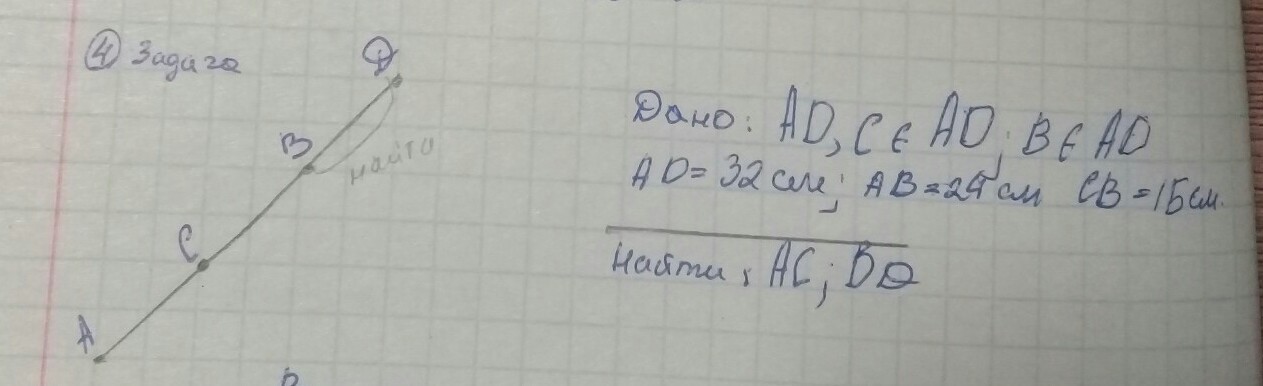 ④ Задача
D
B
найти
C
A
Дано: AD, C ∈ AD; B ∈ AD
AD = 32 см; AB = 24 см CB = 15 см.
Найти: AC; BD